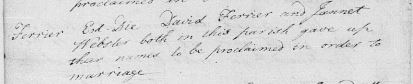 proclaimed in
Ferrier Esd. Die David Ferrier and Jannet
Webster both in this parish gave up
thar names to be proclaimed in order to
marriage